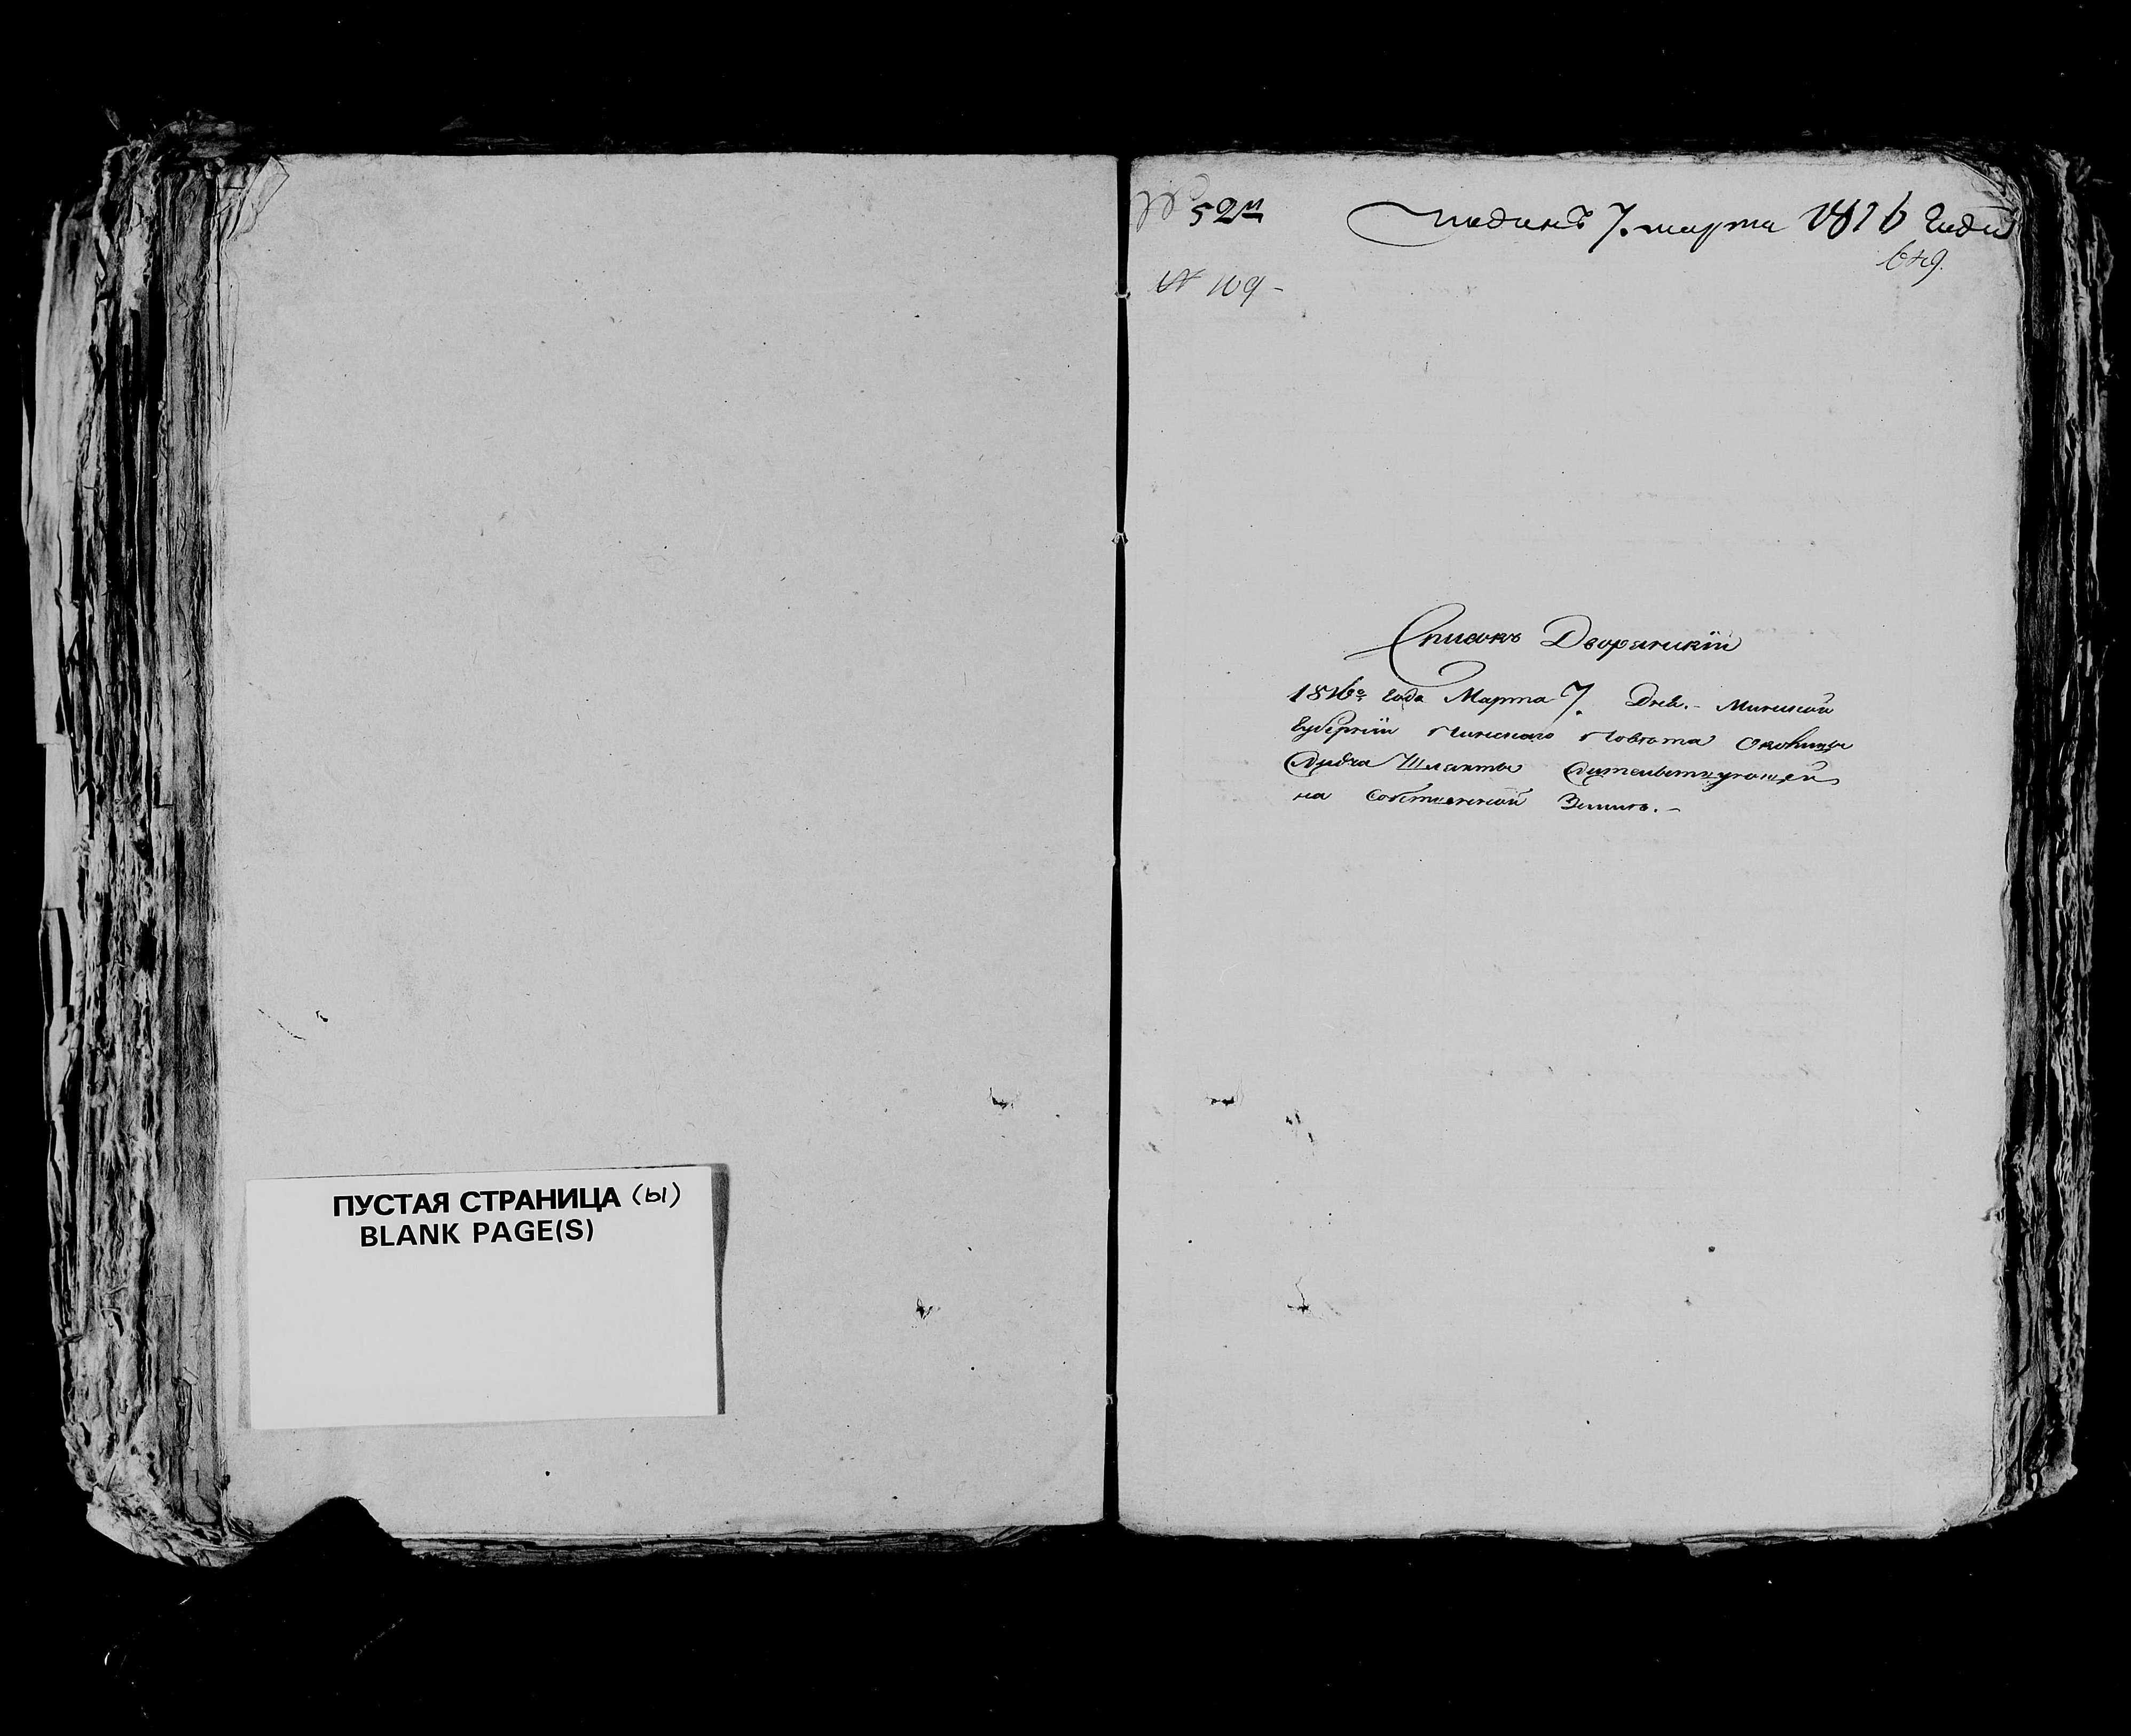 ПУСТАЯ СТРАНИЦА (ы)
BLANK PAGE(S)
№ 52й
Поданъ 7. марта 1816 года
№ 109 -
Списокъ Дворянскій
1816го года Марта 7. Дня. - Минской
Губерніи Пинскаго Повѣта Околицы
Шляхты Жительствующей
на Собственной Землѣ. -